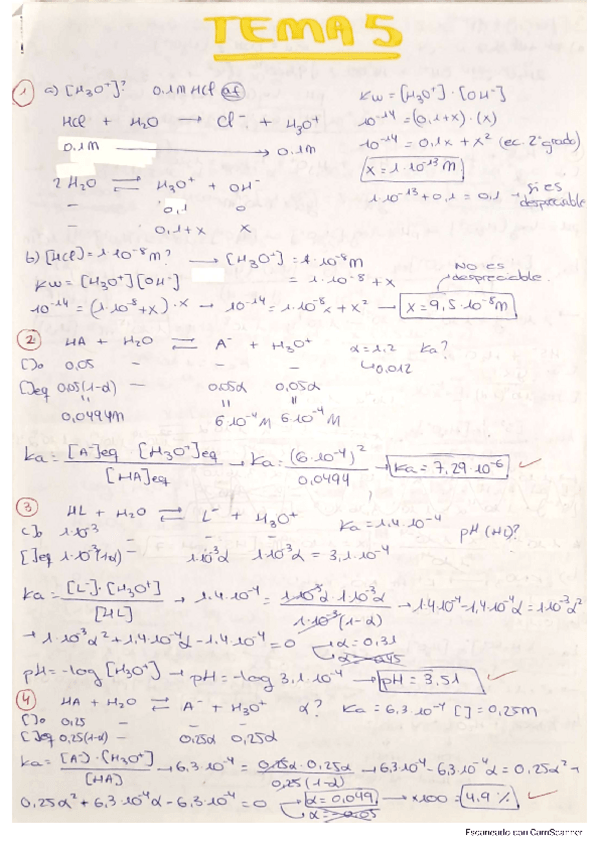 TEMA 5
① a) [H₃O⁺]? 0.1M HCl ac Kw = [H₃O⁺]·[OH⁻]
HCl + H₂O → Cl⁻ + H₃O⁺ 10⁻¹⁴ = (0,1+x)·(x)
0.1M → 0.1M 10⁻¹⁴ = 0,1x + x² (ec. 2º grado)
x = 1·10⁻¹³ M
2 H₂O ⇌ H₃O⁺ + OH⁻ 1·10⁻¹³ + 0,1 = 0,1 → si es despreciable
- 0,1 0
- 0,1+x x
b) [HCl] = 1·10⁻⁸ M? → [H₃O⁺] = 1·10⁻⁸ M
Kw = [H₃O⁺][OH⁻] = 1·10⁻⁸ + x NO es despreciable.
10⁻¹⁴ = (1·10⁻⁸+x)·x → 10⁻¹⁴ = 1·10⁻⁸x + x² → x = 9,5·10⁻⁸ M
② HA + H₂O ⇌ A⁻ + H₃O⁺ α = 1,2 Ka?
[]o 0,05 - - - ↳ 0,012
[]eq 0,05(1-α) - 0,05α 0,05α
= = =
0,0494M 6·10⁻⁴ M 6·10⁻⁴ M
Ka = [A⁻]eq [H₃O⁺]eq / [HA]eq → Ka = (6·10⁻⁴)² / 0,0494 → Ka = 7,29·10⁻⁶ ✓
③ HL + H₂O ⇌ L⁻ + H₃O⁺ Ka = 1.4·10⁻⁴ pH (HL)?
[]o 1·10⁻³ - - -
[]eq 1·10⁻³(1-α) 1·10⁻³α 1·10⁻³α = 3,1·10⁻⁴
Ka = [L⁻]·[H₃O⁺] / [HL] → 1.4·10⁻⁴ = 1·10⁻³α·1·10⁻³α / 1·10⁻³(1-α) → 1.4·10⁻⁴ - 1,4·10⁻⁴α = 1·10⁻³α²
→ 1·10⁻³α² + 1,4·10⁻⁴α - 1,4·10⁻⁴ = 0 α = 0,31
α = -0,45
pH = -log [H₃O⁺] → pH = -log 3,1·10⁻⁴ → pH = 3,51 ✓
④ HA + H₂O ⇌ A⁻ + H₃O⁺ α? Ka = 6,3·10⁻⁴ [] = 0,25M
[]o 0,25 - - -
[]eq 0,25(1-α) 0,25α 0,25α
Ka = [A⁻]·[H₃O⁺] / [HA] → 6,3·10⁻⁴ = 0,25α·0,25α / 0,25(1-α) → 6,3·10⁻⁴ - 6,3·10⁻⁴α = 0,25α² →
0,25α² + 6,3·10⁻⁴α - 6,3·10⁻⁴ = 0 α = 0,049 → x100 = 4.9 % ✓
α = -0.05
Escaneado con CamScanner